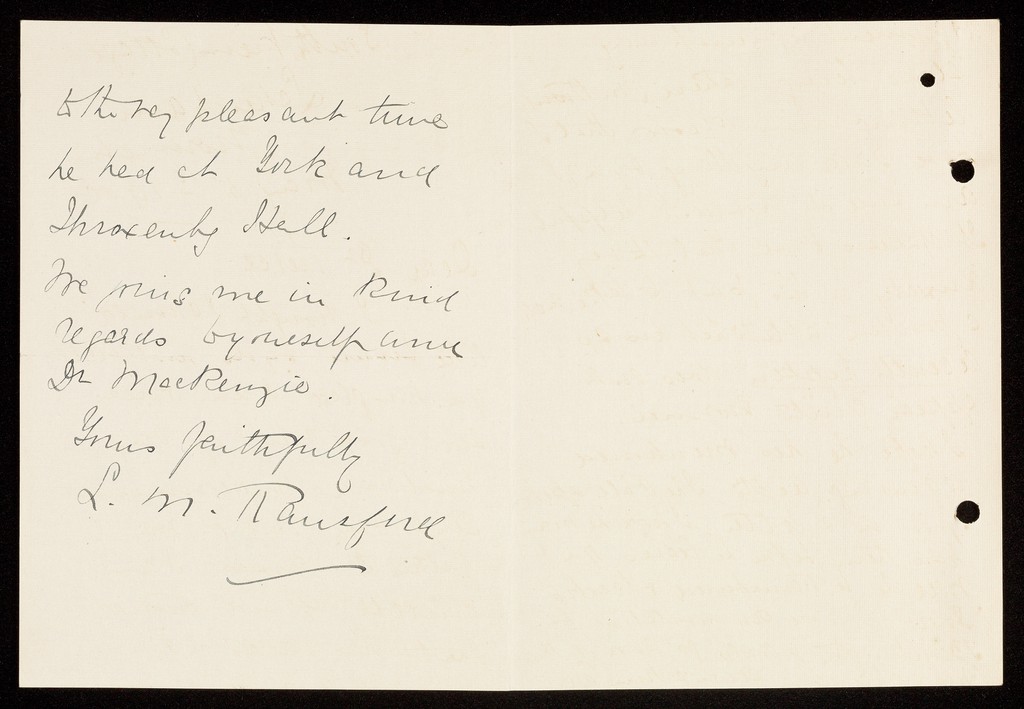 to the very pleasant time
he had at York and
Throxenby Hall.
He joins me in kind
regards to yourself and
Dr MacKenzie.
Yours faithfully
L. M. Ransford